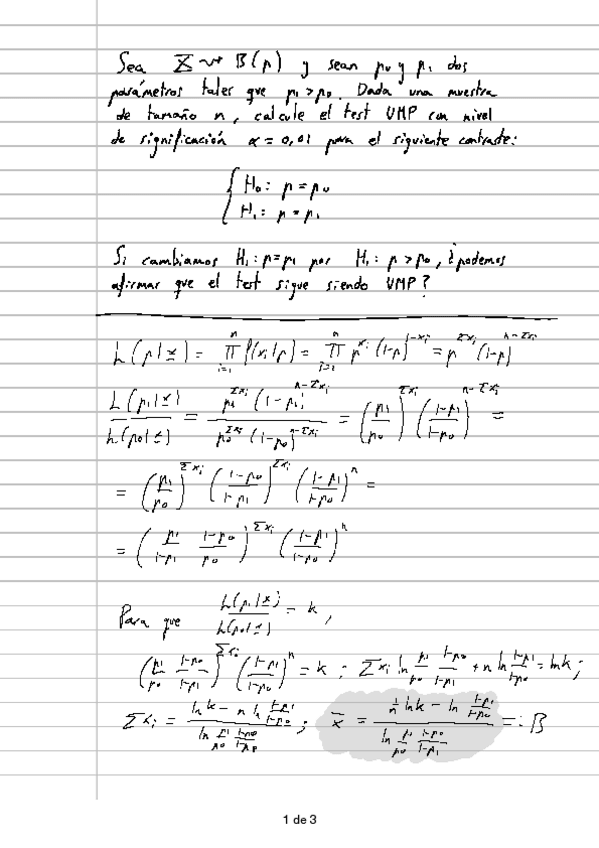 Sea X ⇝ B(p) y sean p₀ y p₁ dos
parámetros tales que p₁ > p₀. Dada una muestra
de tamaño n, calcule el test UMP con nivel
de significación α = 0,01 para el siguiente contraste:
{ H₀: p = p₀
H₁: p = p₁
Si cambiamos H₁: p = p₁ por H₁: p > p₀, ¿podemos
afirmar que el test sigue siendo UMP?
L(p|x) = ∏ᵢ₌₁ⁿ f(xᵢ|p) = ∏ᵢ₌₁ⁿ p^xᵢ (1-p)^(1-xᵢ) = p^Σxᵢ (1-p)^(n-Σxᵢ)
L(p₁|x) / L(p₀|x) = p₁^Σxᵢ (1-p₁)^(n-Σxᵢ) / p₀^Σxᵢ (1-p₀)^(n-Σxᵢ) = (p₁/p₀)^Σxᵢ ((1-p₁)/(1-p₀))^(n-Σxᵢ) =
= (p₁/p₀)^Σxᵢ ((1-p₀)/(1-p₁))^Σxᵢ ((1-p₁)/(1-p₀))^n =
= (p₁/(1-p₁) (1-p₀)/p₀)^Σxᵢ ((1-p₁)/(1-p₀))^n
Para que L(p₁|x)/L(p₀|x) = k,
(p₁/p₀ (1-p₀)/(1-p₁))^Σxᵢ ((1-p₁)/(1-p₀))^n = k ; Σxᵢ ln p₁/p₀ (1-p₀)/(1-p₁) + n ln (1-p₁)/(1-p₀) = ln k ;
Σxᵢ = (ln k - n ln (1-p₁)/(1-p₀)) / (ln p₁/p₀ (1-p₀)/(1-p₁)) ; x̄ = (1/n ln k - ln (1-p₁)/(1-p₀)) / (ln p₁/p₀ (1-p₀)/(1-p₁)) =: B
1 de 3